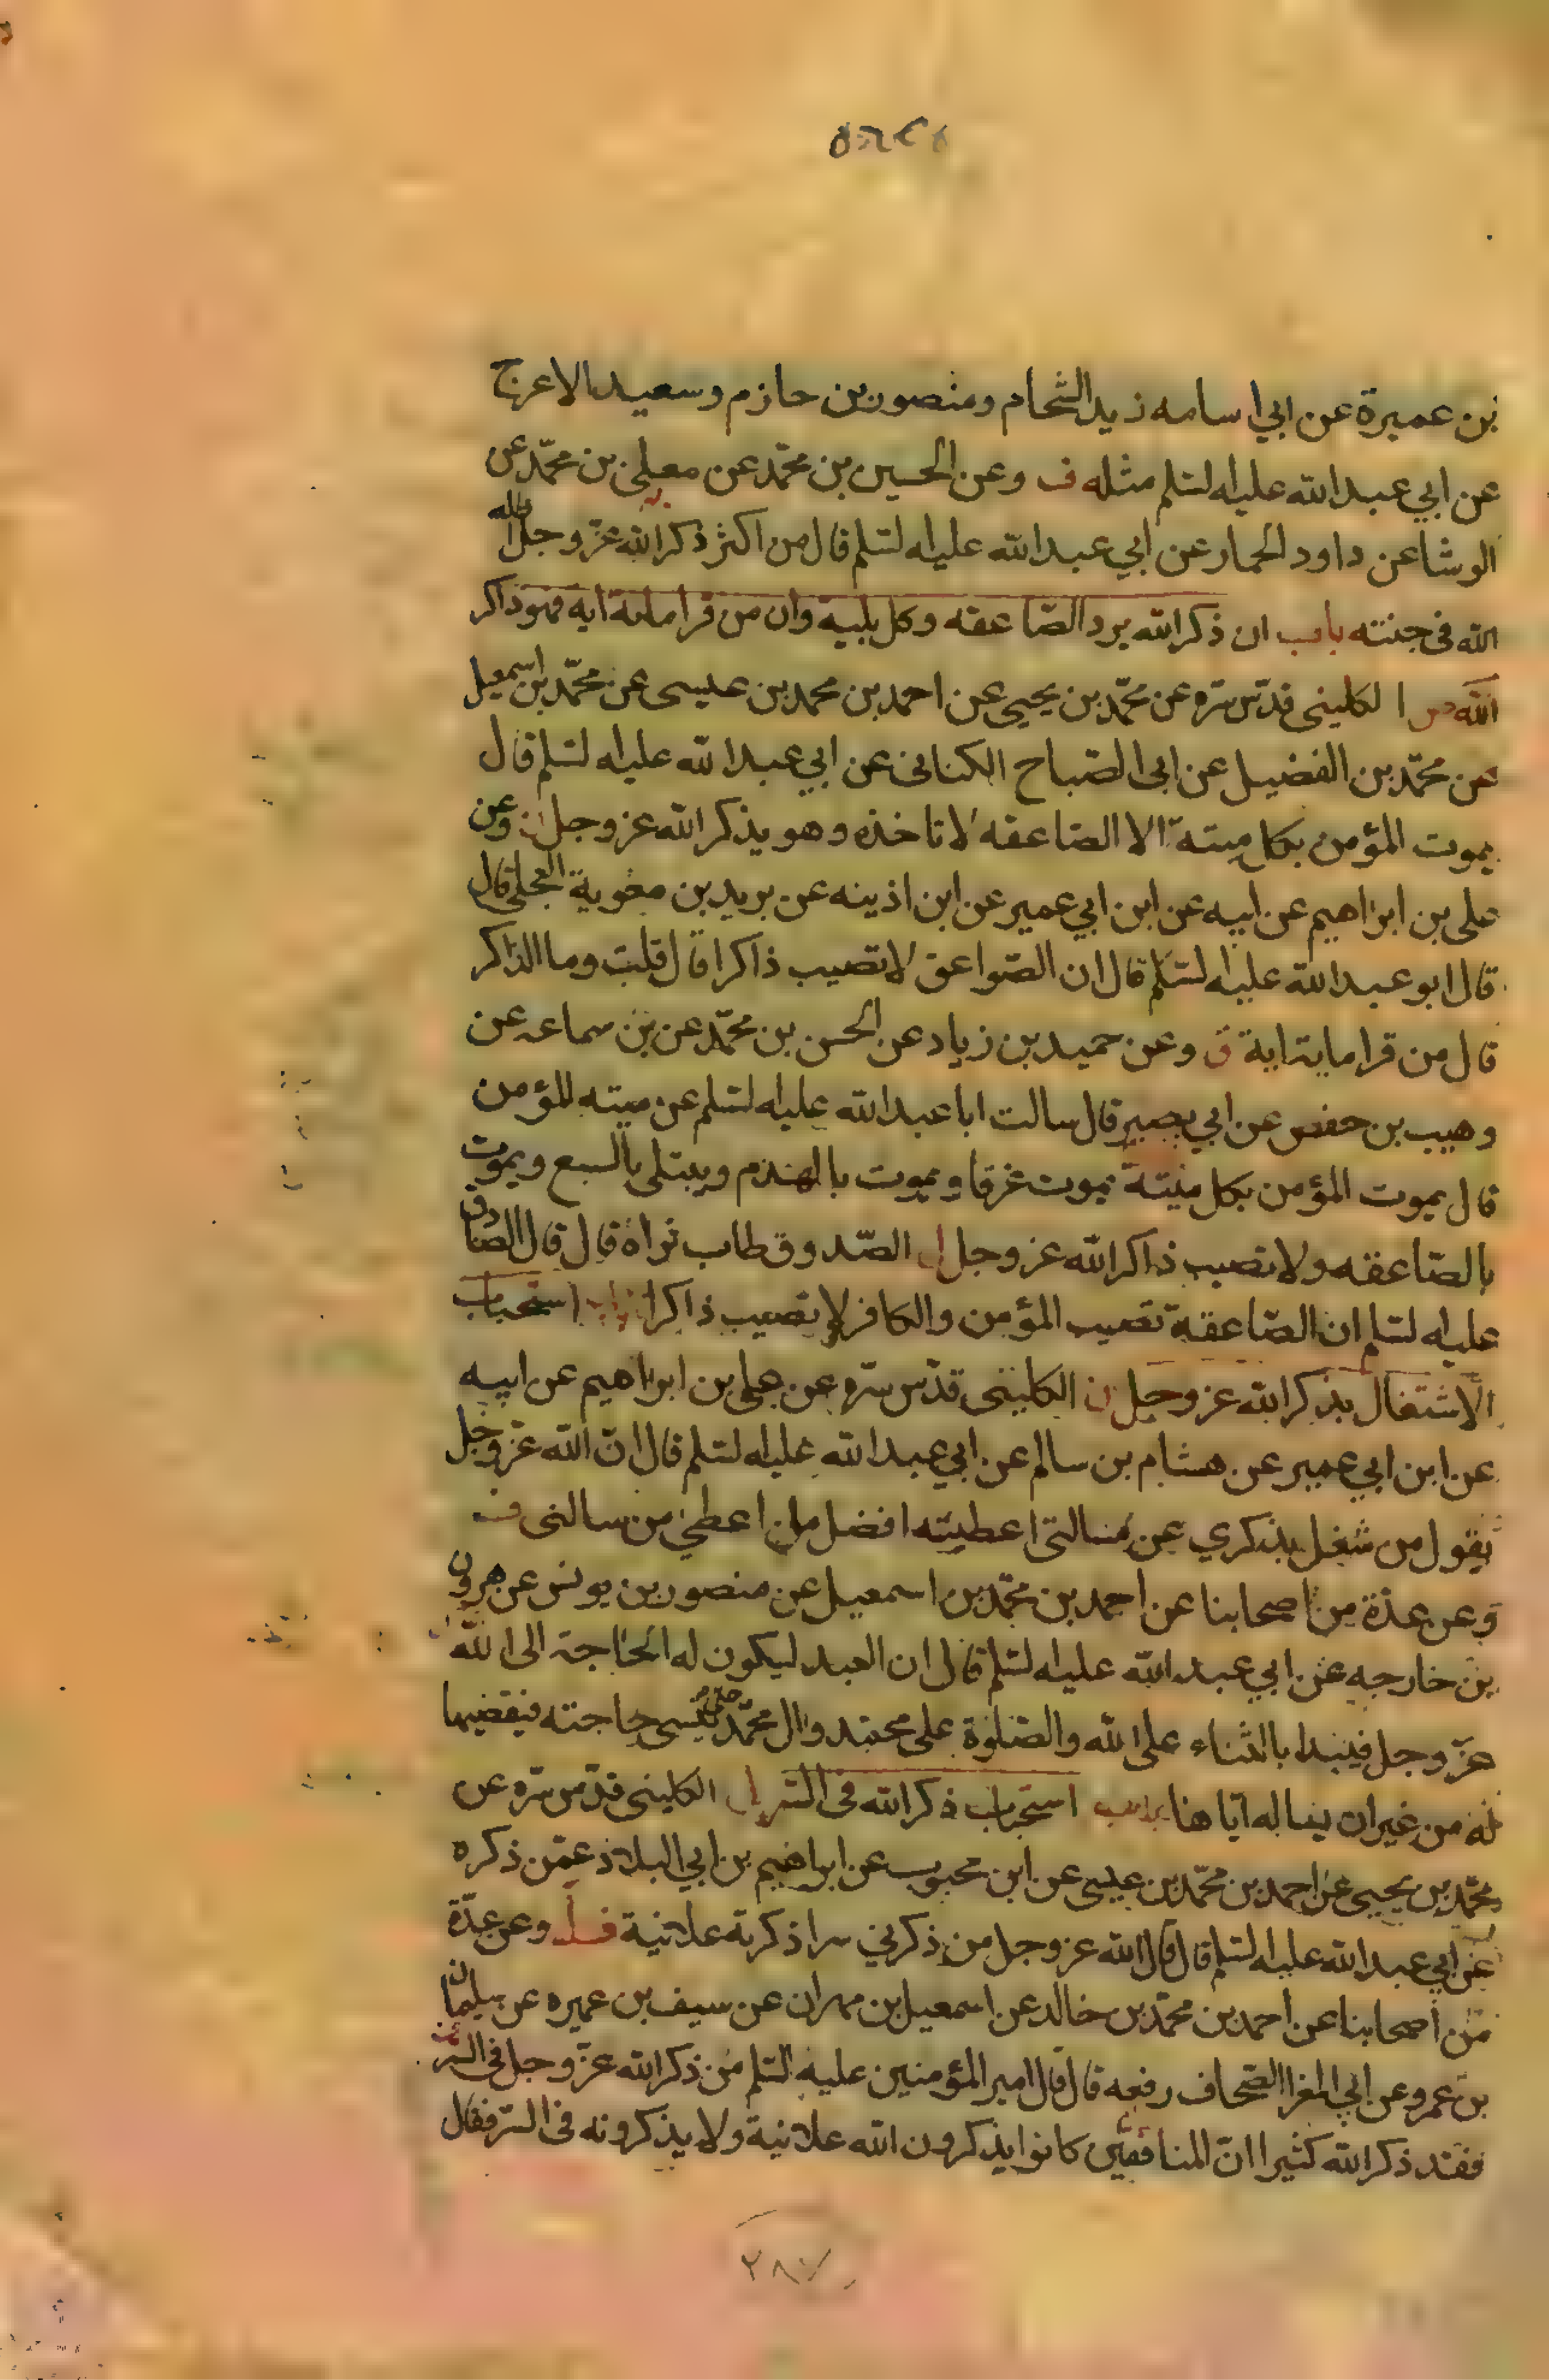 بن عميرة عن ابي اسامه زيد الشحام ومنصور بن حازم وسعيد الاعرج
عن ابي عبد الله عليه لسلم مثله ف وعن الحسين بن محمّد عن معلى بن محمّد عن
الوشا عن داود الحمار عن ابي عبد الله عليه لسلم قال من اكثر ذكر الله عزّ وجل اظله
الله في جنته باب ان ذكر الله يرد الصّاعقه وكل بلية وان من قرا مائة ايه فهو ذاكر
الله الكليني قدّس سّره عن محمّد بن يحيى عن احمد بن محمد بن عيسى عن محمّد بن اسمعيل
عن محمّد بن الفضيل عن ابي الصّباح الكناني عن ابي عبد الله عليه لسلم قال
يموت المؤمن بكل ميتة الا الصاعقه لا تاخذه وهو يذكر الله عز وجل وعن
علي بن ابراهيم عن ابيه عن ابن ابي عمير عن ابن اذينه عن بريد بن معوية العجلي قال
قال ابو عبد الله عليه لسّلم قال ان الصّواعق لا تصيب ذاكرا قال قلت وما الذاكر
قال من قرا ماية اية ف وعن حميد بن زياد عن الحسن بن محمّد عن بن سماعه عن
وهيب بن حفص عن ابي بصير قال سالت ابا عبد الله عليه لسلم عن ميته المؤمن
قال يموت المؤمن بكل ميتة يموت غرقا ويموت بالهدم ويبتلى بالسبع ويموت
بالصّاعقه ولا تصيب ذاكر الله عز وجل الصّدوق طاب ثراه قال قال الصادق
عليه لسلم ان الصّاعقة تصيب المؤمن والكافر لا تصيب ذاكرا باب استحباب
الاشتغال بذكر الله عز وجل الكليني قدّس سّره عن علي بن ابراهيم عن ابيه
عن ابن ابي عمير عن هشام بن سالم عن ابي عبد الله عليه لسلم قال انّ الله عزّ وجل
يقول من شغل بذكري عن مسالتي اعطيته افضل ما اعطي من سالني ف
وعن عدّة من اصحابنا عن احمد بن محمّد بن اسمعيل عن منصور بن يونس عن هرون
بن خارجه عن ابي عبد الله عليه لسلم قال ان العبد ليكون له الحاجة الى الله
عزّ وجل فيبدا بالثناء على الله والصّلوة على محمد وال محمّد حتى ينسى حاجته فيقضيها
له من غير ان يساله اياها باب استحباب ذكر الله في السر الكليني قدّس سّره عن
محمّد بن يحيى عن احمد بن محمّد بن عيسى عن ابن محبوب عن ابراهيم بن ابي البلاد عمّن ذكره
عن ابي عبد الله عليه لسلم قال قال الله عز وجل من ذكرني سرا ذكرته علانية وعن عدّة
من اصحابنا عن احمد بن محمّد بن خالد عن اسمعيل بن مهران عن سيف بن عميره عن سليمان
بن عمرو عن ابي المغرا الصّحاف رفعه قال قال امير المؤمنين عليه السلم من ذكر الله عزّ وجل في السّر
فقد ذكر الله كثيرا انّ المنافقين كانوا يذكرون الله علانية ولا يذكرونه في السّر فقال